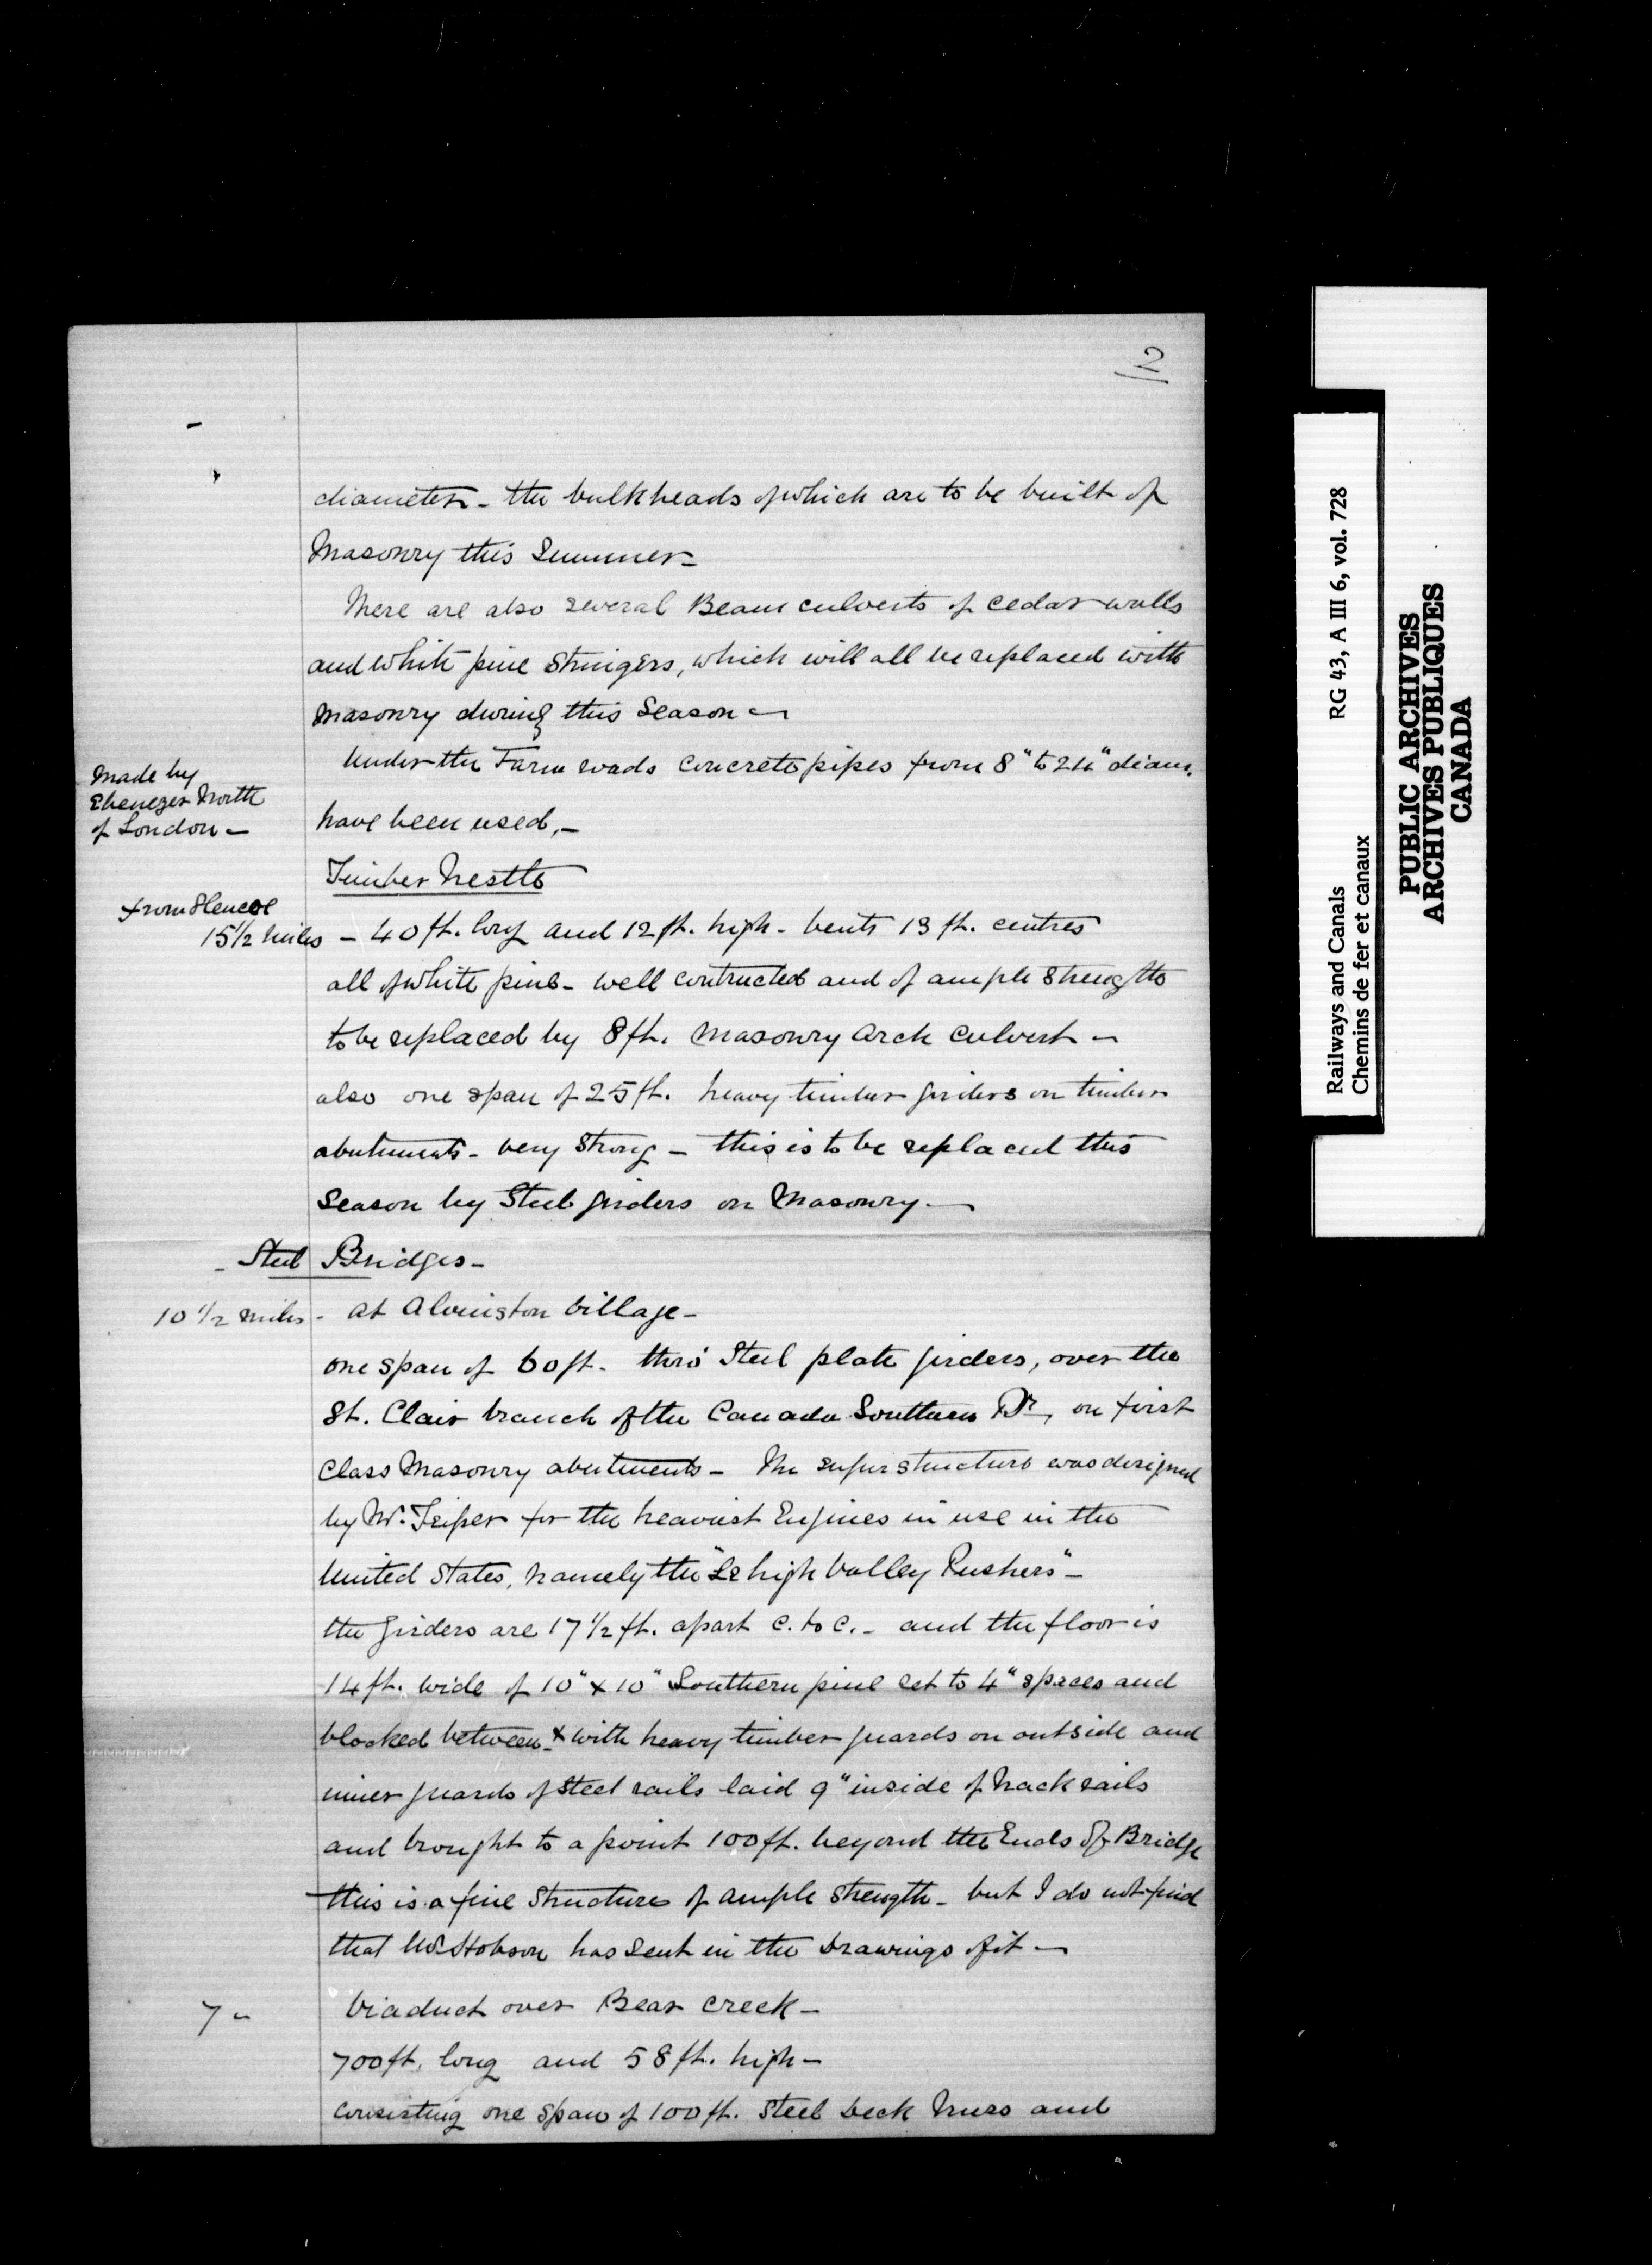 2
diameter - the bulkheads of which are to be built of
Masonry this Summer -
There are also several Beam culverts of cedar walls
and white pine Stringers, which will all be replaced with
Masonry during this Season -
Made by
Ebenezer North
of London -
Under the Farm roads concrete pipes from 8" to 24" diam.
have been used, -
Timber Trestle
from Glencoe
15 1/2 miles - 40 ft. long and 12 ft. high - bents 13 ft. centres
all of white pine - well contructed and of ample strength
to be replaced by 8 ft. Masonry Arch Culvert -
also one span of 25 ft. heavy timber girders on timber
abutments - very strong - this is to be replaced this
Season by Steel girders on Masonry -
- Steel Bridges -
10 1/2 miles - at Alvinston Village -
one span of 60 ft. thro' Steel plate girders, over the
St. Clair branch of the Canada Southern Ry, on first
Class Masonry abutments - The superstructure was designed
by Mr. for the heaviest Engines in use in the
United States, namely the "Lehigh Valley Pushers" -
the girders are 17 1/2 ft. apart c. to c. - and the floor is
14 ft. wide of 10" x 10" Southern pine set to 4" spaces and
blocked between & with heavy timber guards on outside and
inner guards of steel rails laid 9" inside of track rails
and brought to a point 100 ft. beyond the Ends of Bridge
this is a fine structure of ample strength - but I do not find
that Mr. Hobson has sent in the drawings of it -
7 - Viaduct over Bear Creek -
700 ft. long and 58 ft. high -
consisting one span of 100 ft. Steel Deck Truss and
Railways and Canals RG 43, A III 6, vol. 728
Chemins de fer et canaux
PUBLIC ARCHIVES
ARCHIVES PUBLIQUES
CANADA